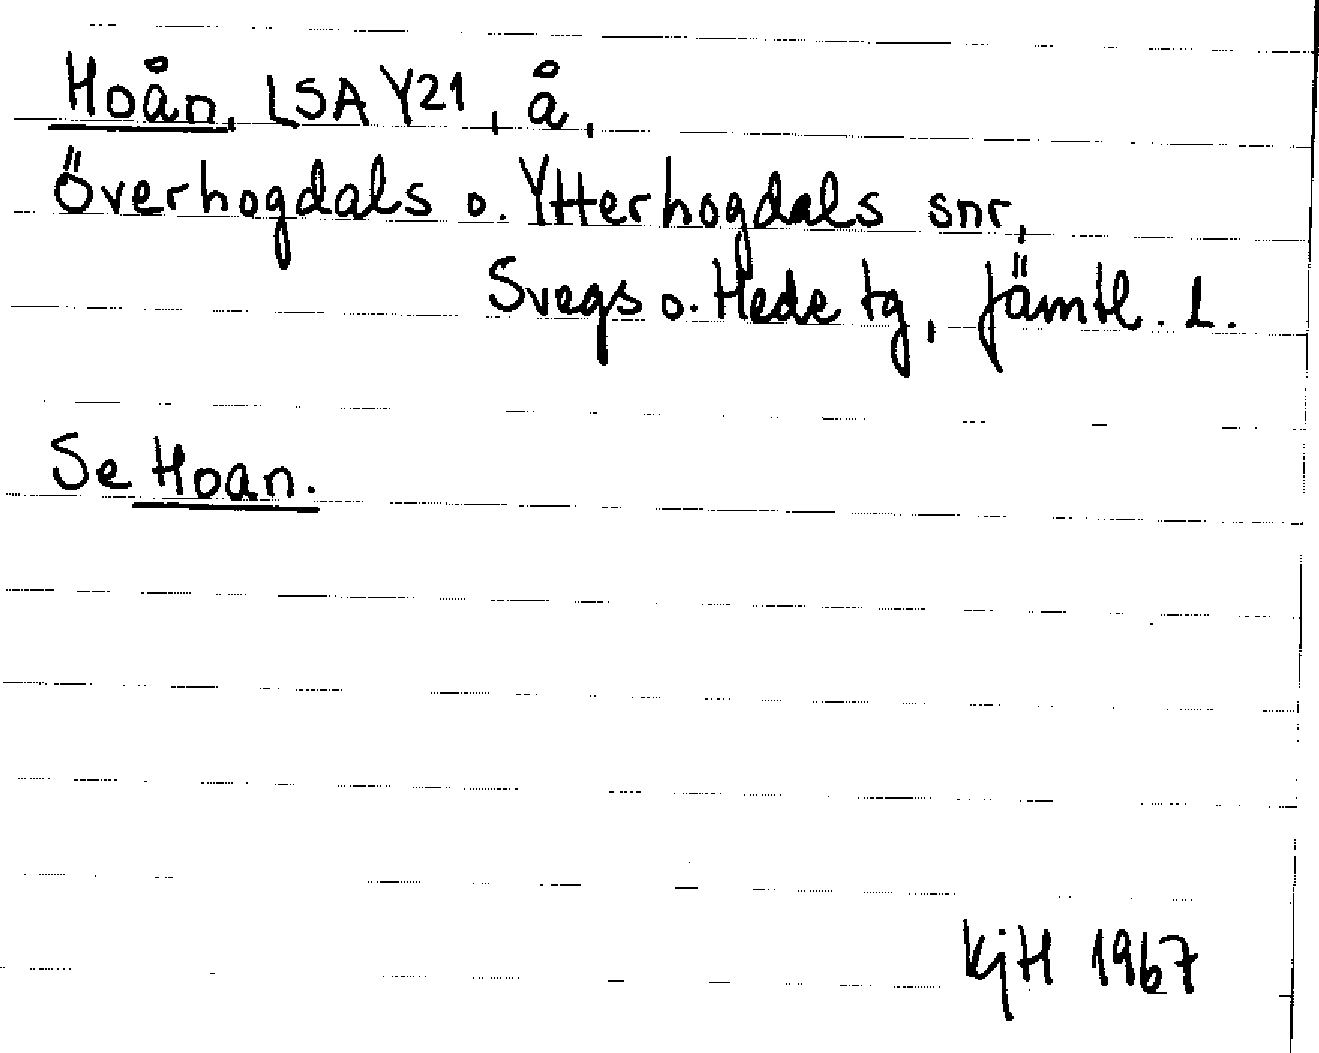 Hoån, LSA Y21, å,
Överhogdals o. Ytterhogdals snr,
Svegs o. Hede tg, Jämtl. L.
Se Hoan.
KjH 1967